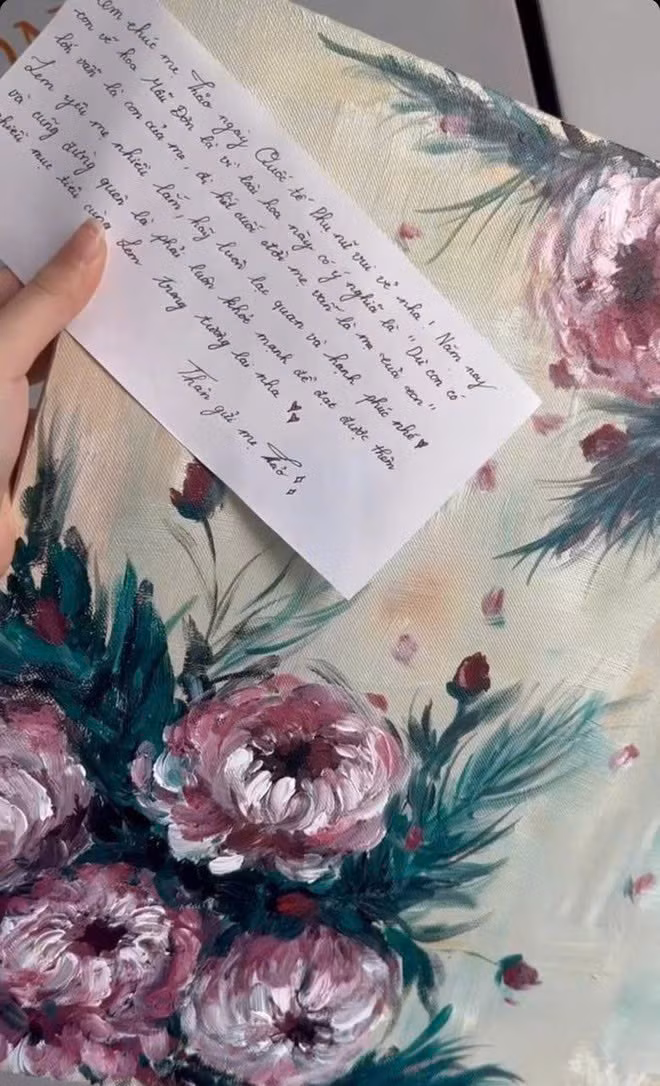 Lem chúc mẹ Thảo ngày Quốc tế Phụ nữ vui vẻ nha! Năm nay
con vẽ hoa Mẫu Đơn là vì loài hoa này có ý nghĩa là "Dù con có
lớn vẫn là con của mẹ, đi hết cuộc đời mẹ vẫn là mẹ của con"
Lem yêu mẹ nhiều lắm, hãy luôn lạc quan và hạnh phúc nhé ♥
và cũng đừng quên là phải luôn khoẻ mạnh để đạt được thêm
nhiều mục tiêu cùng Lem trong tương lai nha ♥♥
Thân gửi mẹ Thảo